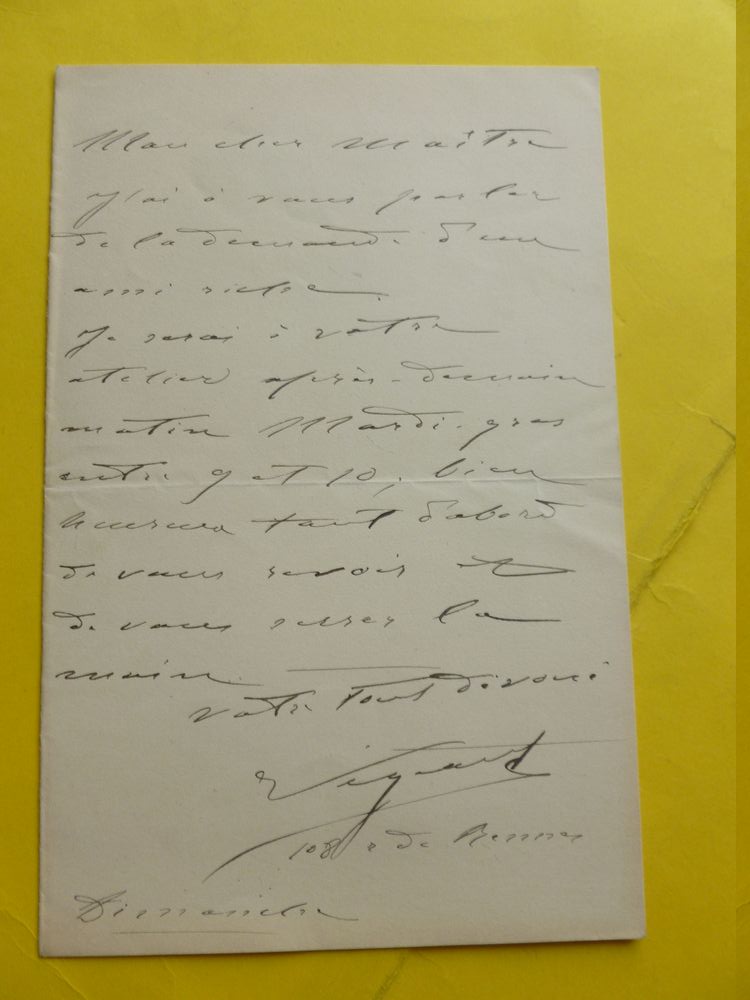 Mon cher Maître
J'ai à vous parler
de la demande d'un
ami riche.
Je serai à vôtre
atelier après-demain
matin Mardi-gras
entre 9 et 10, bien
heureux tout d'abord
de vous revoir et
de vous serrer la
main.
Votre tout dévoué
108 r de Rennes
Dimanche